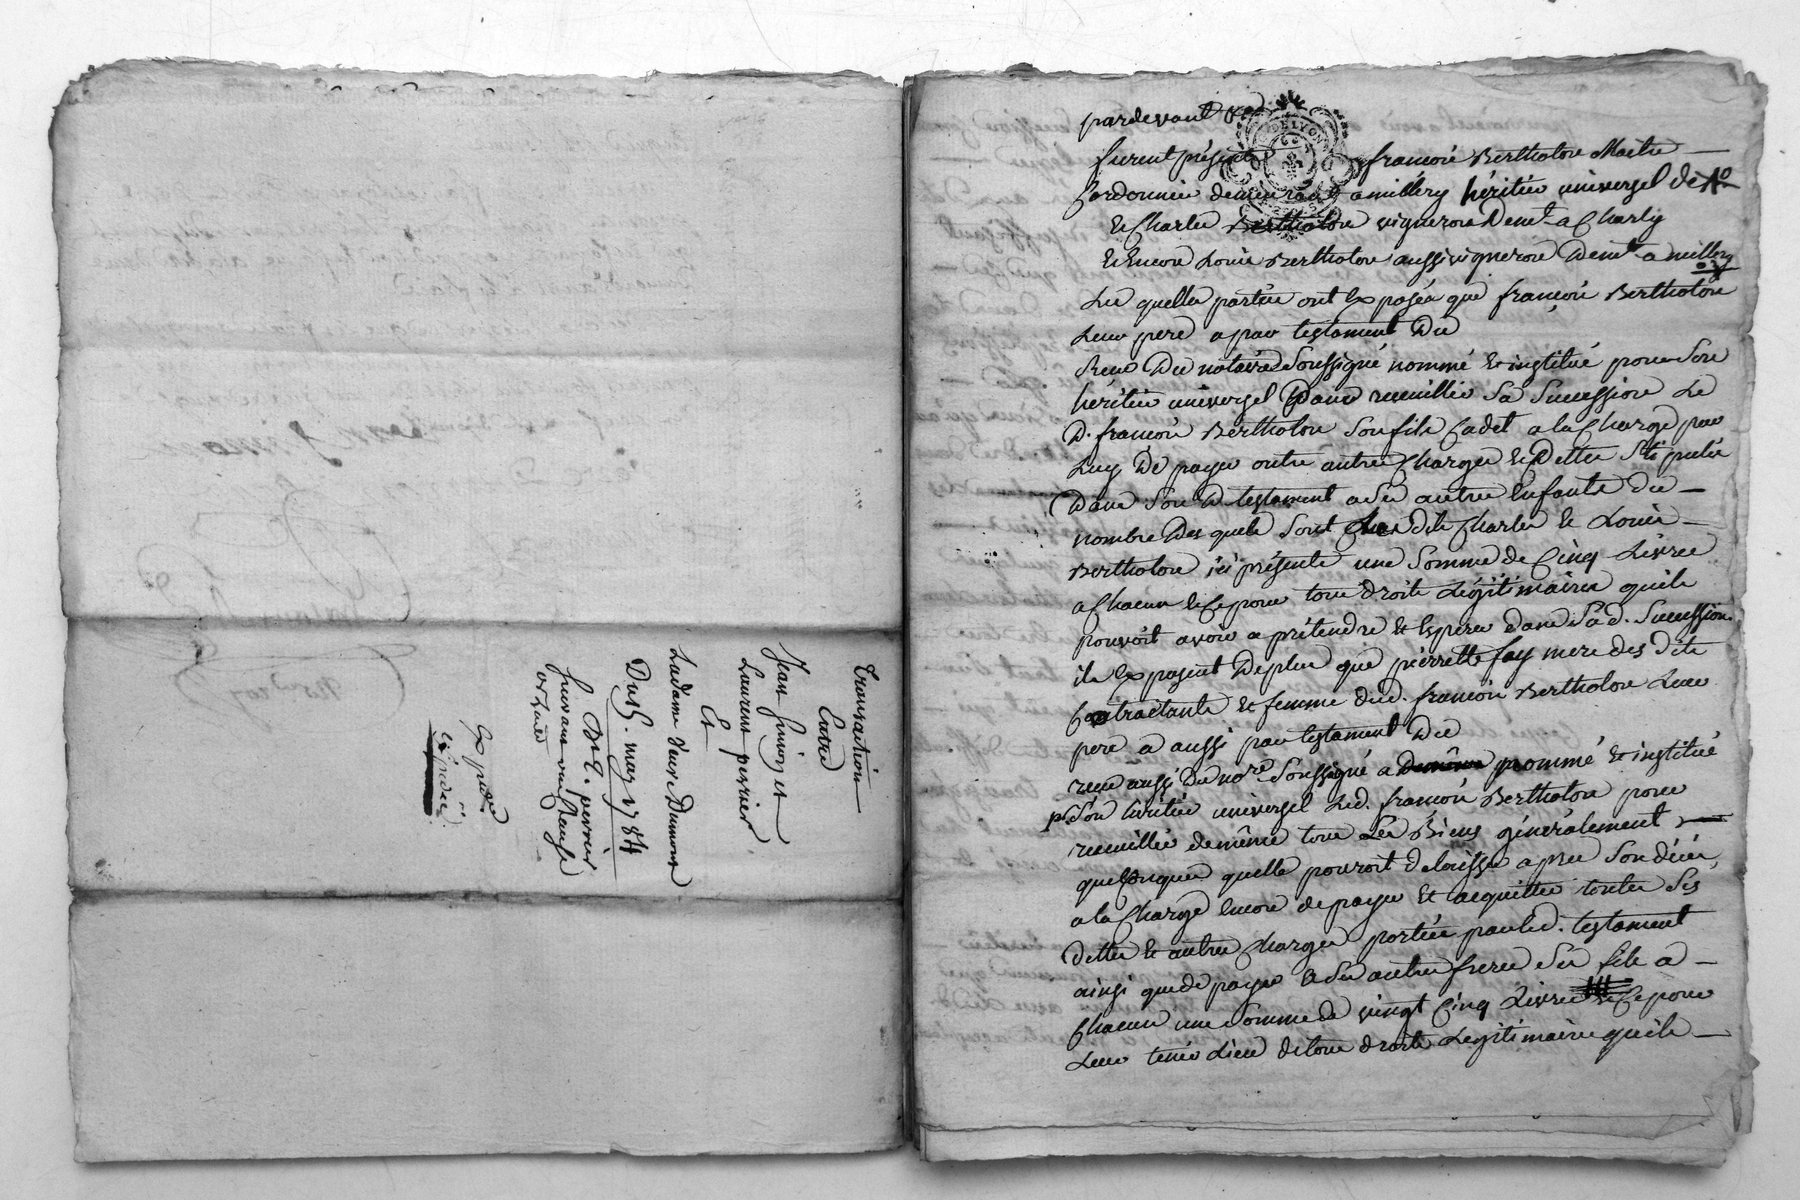 Transaction
Entre
Jean et
Laurent perrier
Et
La dame veuve Dumont
Du 15. may 1784
Expedié
pardevant &c
furent présents françois Bertholon Maitre
Cordonnier demeurant a millery héritier universel de
& Charles Bertholon vigneron demt a Charly
& Encore Louis Bertholon aussi vigneron demt a millery
Les quelles parties ont Exposées que françois Bertholon
Leur pere a par testament du
Reçu du notaire soussigné nommé & institué pour son
héritier universel pour recueillir sa succession Le
d. françois Bertholon son fils Cadet a la Charge par
Luy de payer outre autres Charges & dettes stipulées
dans son d testament a ses autres Enfants du
nombre des quels sont Les dits Charles & Louis
Bertholon ici présents une somme de Cinq Livres
a Chacun & Ce pour tous droits Légitimaires quils
pouvoit avoir a prétendre & Esperer dans sa d. succession.
ils Exposent de plus que pierrette fay mere des dits
Contractants & femme dud. françois Bertholon Leur
pere a aussi par testament du
reçu aussi du nore soussigné a nommé & institué
pr. son héritier universel Led. françois Bertholon pour
recueillir de même tous Les Biens généralement
quelconques quelle pouroit delaisser apres son décès,
a la Charge Encore de payer & acquitter toutes ses
dettes & autres Charges portées par led. testament
ainsi que de payer a ses autres freres ses fils a
Chacun une somme de vingt Cinq Livres & Ce pour
Leur tenir Lieu de tous droits Légitimaires quils